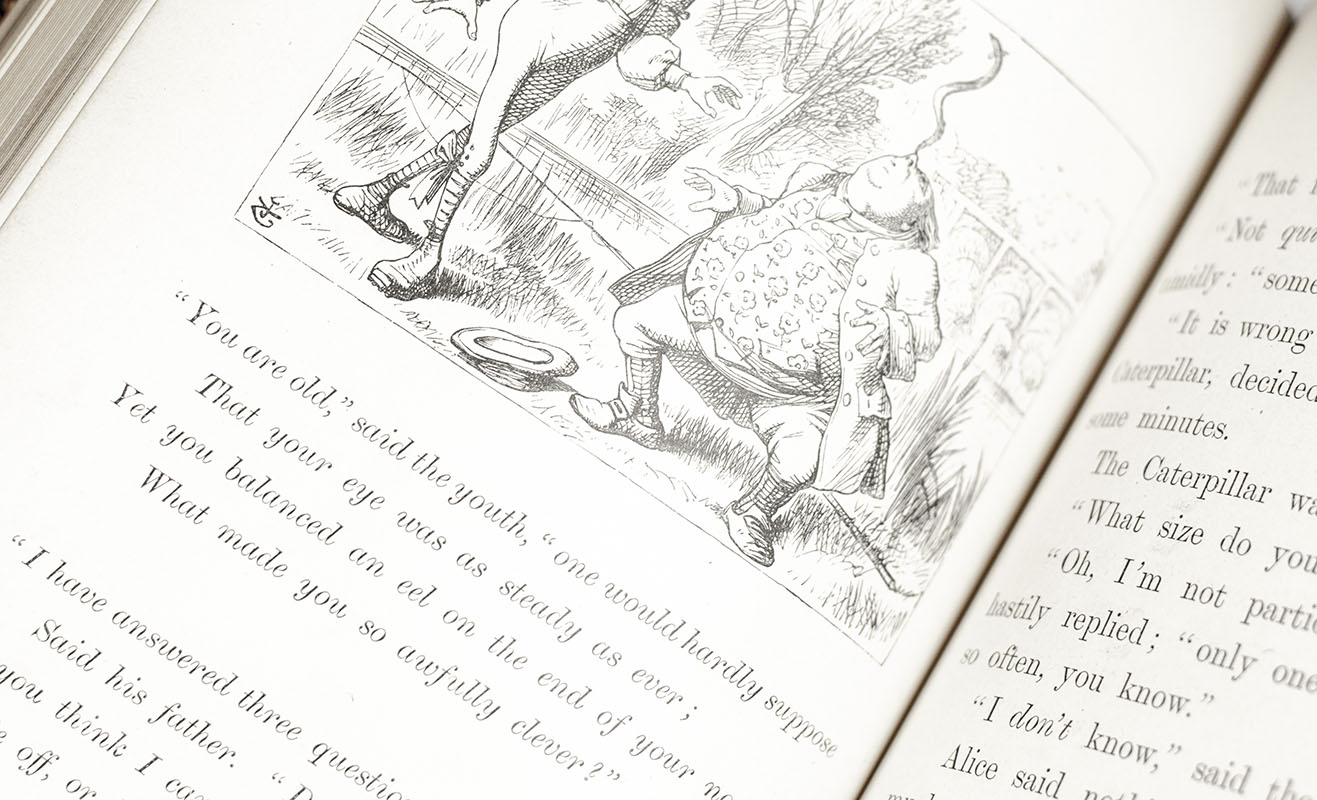 “You are old,” said the youth, “one would hardly suppose
That your eye was as steady as ever;
Yet you balanced an eel on the end of your
What made you so awfully clever?”
“I have answered three
Said his father. “
you think I can
off, or
“That
“Not
“some
“It is wrong
Caterpillar, decided
some minutes.
The Caterpillar
“What size do you
“Oh, I’m not
hastily replied; “only one
so often, you know.”
“I don’t know,” said
Alice said